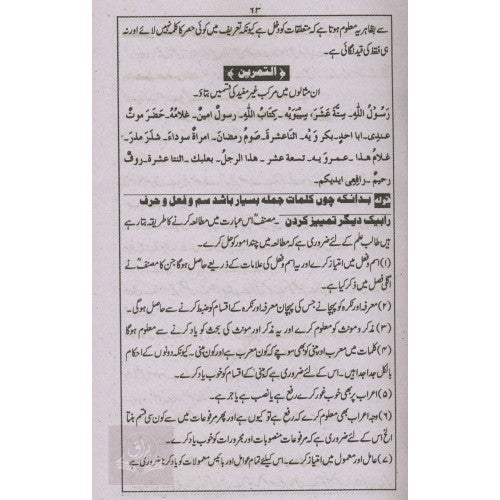 ٦٣
سے بظاہر یہ معلوم ہوتا ہے کہ متعلقات کو دخل ہے کیونکہ تعریف میں کوئی حصر کا کلمہ نہیں لائے اور نہ
ہی فقط کی قید لگائی ہے۔
﴿التمرین﴾
ان مثالوں میں مرکب غیر مفید کی قسمیں بتاؤ۔
رَسُوْلُ اللّٰهِ۔ سِتَّةَ عَشَرَ۔ سِیْبَوَیْهِ۔ کِتَابُ اللّٰهِ۔ رسول امین۔ غلامُهُ۔ حَضَرَ موتُ
عندی۔ ابا احدٍ۔ بکر و یْه۔ اثنا عشرة۔ صَومُ رمضان۔ امراة سوداء۔ شَذَرَ مَذَرَ۔
غلامُ هذا۔ عمرو یه۔ تسعة عشر۔ هذا الرجلُ۔ بعلبك۔ اثنتا عشرة۔ روف
رحیم۔ رافعی ایدیکم۔
قوله بدانکه چوں کلمات جمله بسیار باشد سم و فعل و حرف
رابیک دیگر تمییز کردن۔ مصنفؒ اس عبارت میں مطالعہ کرنے کا طریقہ بتا رہے
ہیں طالب علم کے لئے ضروری ہے کہ مطالعہ میں چند امور کو حل کرے۔
(۱) اسم و فعل میں امتیاز کرے اور یہ اسم و فعل کی علامات کے ذریعے حاصل ہوگا جن کا مصنفؒ نے
اگلی فصل میں ذکر کیا ہے۔
(۲) معرفہ اور نکرہ کو پہچانے جس کی پہچان معرفہ اور نکرہ کے اقسام کو ضبط کرنے سے حاصل ہوگی۔
(۳) مذکر و مونث کو معلوم کرے اور یہ مذکر اور مونث کی بحث کو یاد کرنے سے معلوم ہوگا
(۴) کلمات میں معرب اور مبنی کو بھی سوچے کہ کون معرب ہے اور کون مبنی۔ کیونکہ دونوں کے احکام
بالکل جدا جدا ہیں۔ اس کے لئے ضروری ہے کہ مبنی کے اقسام کو خوب یاد کرے۔
(۵) اعراب پر بھی خوب غور کرے رفع ہے یا نصب ہے یا جر ہے۔
(٦) وجہ اعراب بھی معلوم کرے کہ رفع ہے تو کیوں ہے اور پھر مرفوعات میں سے کون سی قسم بنتا
الخ اس کے لئے ضروری ہے کہ مرفوعات منصوبات اور مجرورات کو خوب یاد کرے۔
(۷) عامل اور معمول میں امتیاز کرے۔ اس کیلئے تمام عوامل اور بائیس معمولات کو یاد کرنا ضروری ہے